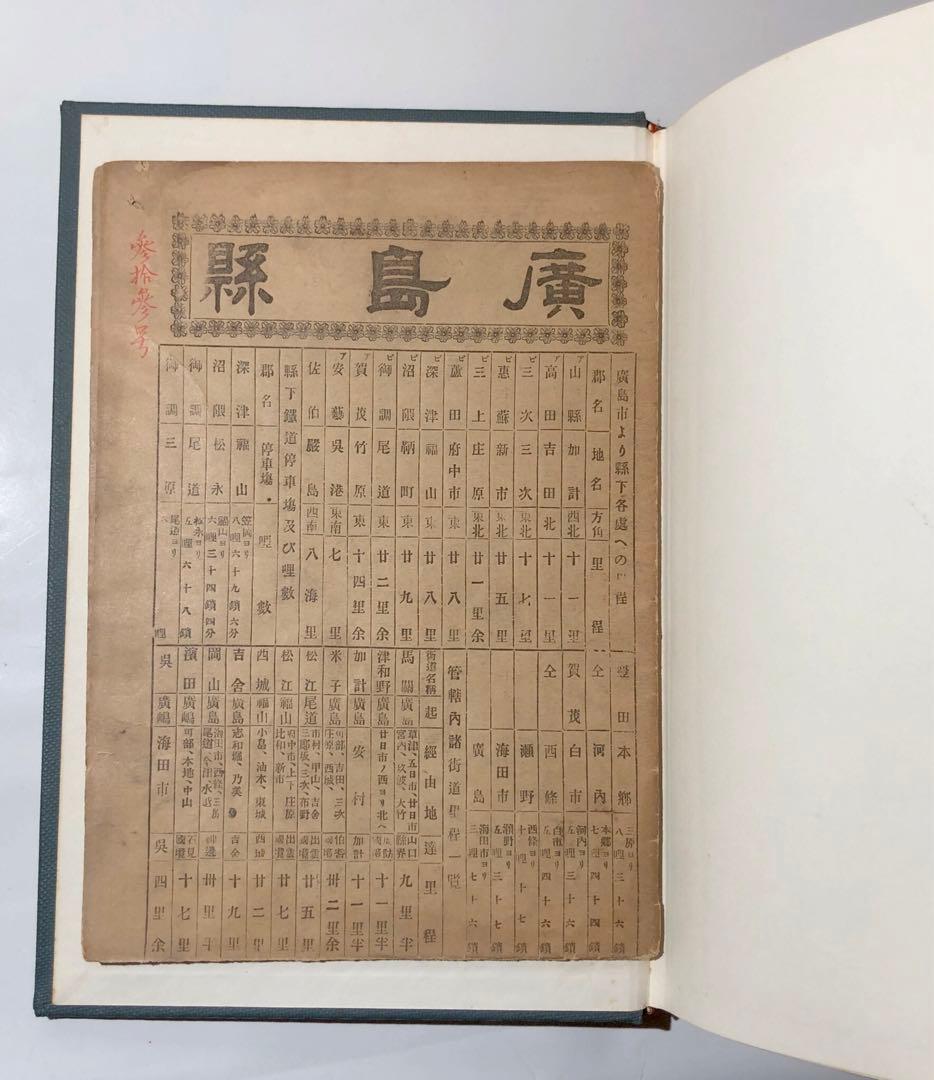 廣島縣
參拾參号
廣島市より縣下各處への里程
郡名 地名 方角 里程
ア 山縣 加計 西北 十一里
ア 高田 吉田 北 十一里
ビ 三次 三次 東北 十七里
ビ 惠蘇 新市 東北 廿五里
ビ 三上 庄原 東北 廿一里余
ビ 蘆田 府中市 東 廿八里
ビ 深津 福山 東 廿八里
ビ 沼隈 鞆町 東 廿九里
ビ 御調 尾道 東 廿二里余
ア 賀茂 竹原 東 十四里余
ア 安藝 吳港 東南 七里
佐伯 嚴島 西南 八海里
縣下鐵道停車塲及び哩數
郡名 停車塲 哩數
深津 福山 笠岡ヨリ 八哩六十九鎖六分
沼隈 松永 福山ヨリ 六哩三十四鎖四分
御調 尾道 松永ヨリ 左哩六十八鎖
御調 三原 尾道ヨリ 哩
豊田 本鄉 三原ヨリ 八哩三十六鎖
仝 河內 本鄉ヨリ 七哩四十四鎖
賀茂 白市 河內ヨリ 左哩三十六鎖
仝 西條 白市ヨリ 左哩四十六鎖
瀨野 西條ヨリ 十哩十七鎖
海田市 瀨野ヨリ 左哩七十六鎖
廣島 海田市ヨリ 三哩七十六鎖
管轄內諸街道里程一覽
街道名稱 起 經由地 達 里程
馬關 廣島 草津、五日市、廿日市、宮內、玖波、大竹 山口縣界 九里半
津和野 廣島 廿日市ノ西ヨリ北ヘ 十一里半
加計 廣島 安村 加計 十一里半
米子 廣島 可部、吉田、三次、庄原、西城、 伯耆國境 卅二里余
松江 尾道 市村、甲山、吉舍、三郎坂、三次、布野 出雲國境 廿五里
松江 福山 府中市、上下、庄原、比和、新市 出雲國境 廿七里
西城 福山 小畠、油木、東城 西城 廿二里
吉舍 廣島 志和堀、乃美 吉舍 十九里
岡山 廣島 海田市、西條、三原、尾道、今津、水 神邊 卅里半
濱田 廣嶋 可部、本地、中山 石見國境 十七里
吳 廣嶋 海田市 吳 四里余